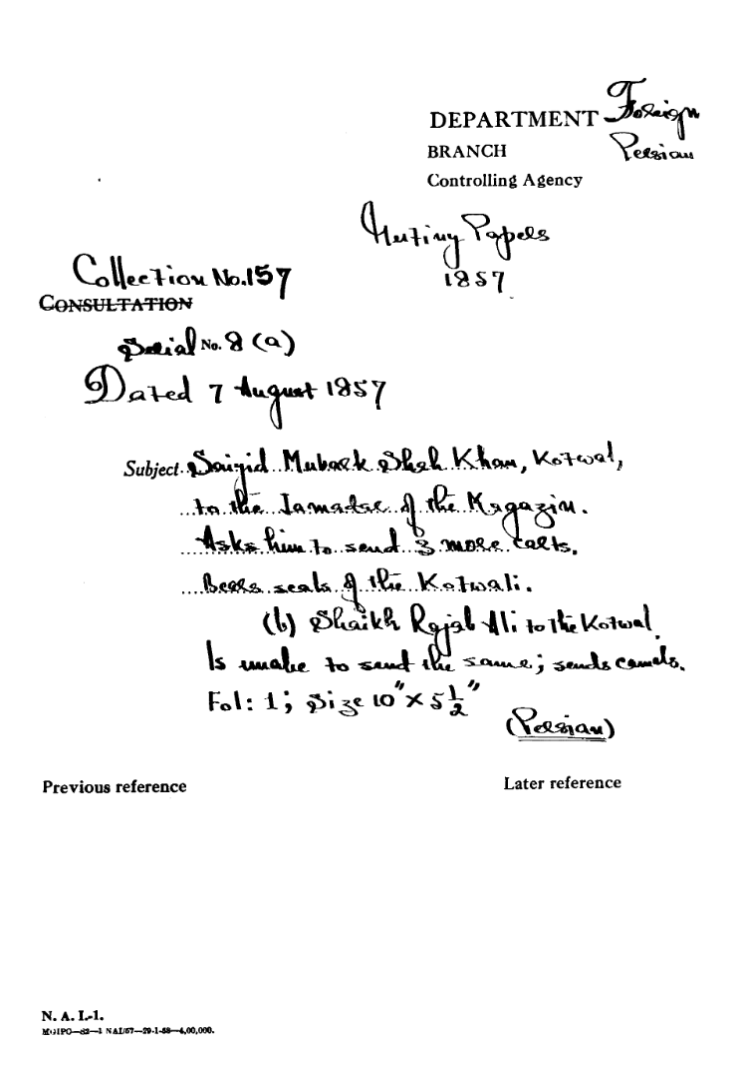 DEPARTMENT Foreign
BRANCH Persian
Controlling Agency
Mutiny Papers
1857
Collection No. 157
CONSULTATION
Serial No. 8 (a)
Dated 7 August 1857
Subject. Saiyid Mubark Shah Khan, Kotwal,
to the Jamadar of the Magazin.
Asks him to send 3 more carts.
Bears seals of the Kotwali.
(b) Shaikh Rajab Ali to the Kotwal.
Is unable to send the same; sends camels.
Fol: 1; Size 10" x 5 1/2"
(Persian)
Previous reference Later reference
N. A. I.-1.
MGIPC—82—1 NAI/57—29-1-58—4,00,000.